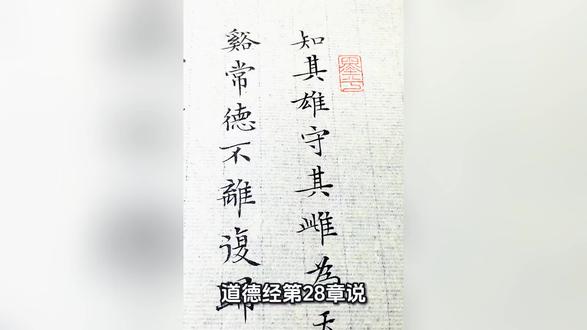 知其雄守其雌為天
谿常德不離復歸
道德经第28章说